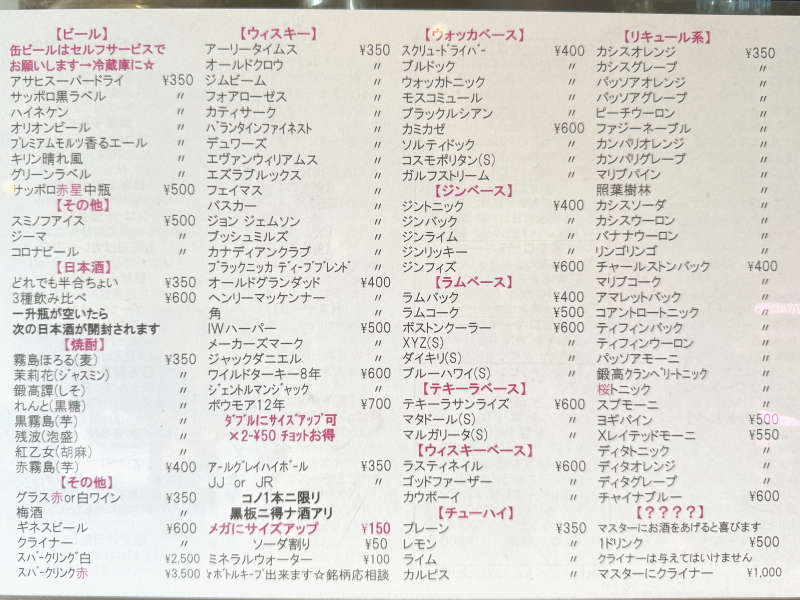 【ビール】
缶ビールはセルフサービスで
お願いします→冷蔵庫に☆
アサヒスーパードライ ¥350
サッポロ黒ラベル 〃
ハイネケン 〃
オリオンビール 〃
プレミアムモルツ香るエール 〃
キリン晴れ風 〃
グリーンラベル 〃
サッポロ赤星中瓶 ¥500
【その他】
スミノフアイス ¥500
ジーマ 〃
コロナビール 〃
【日本酒】
どれでも半合ちょい ¥350
3種飲み比べ ¥600
一升瓶が空いたら
次の日本酒が開封されます
【焼酎】
霧島ほろる(麦) ¥350
茉莉花(ジャスミン) 〃
鍛高譚(しそ) 〃
れんと(黒糖) 〃
黒霧島(芋) 〃
残波(泡盛) 〃
紅乙女(胡麻) 〃
赤霧島(芋) ¥400
【その他】
グラス赤or白ワイン ¥350
梅酒 〃
ギネスビール ¥600
クライナー 〃
スパークリング白 ¥2,500
スパークリンク赤 ¥3,500
【ウィスキー】
アーリータイムス ¥350
オールドクロウ 〃
ジムビーム 〃
フォアローゼス 〃
カティサーク 〃
バランタインファイネスト 〃
デュワーズ 〃
エヴァンウィリアムス 〃
エズラブルックス 〃
フェイマス 〃
バスカー 〃
ジョン ジェムソン 〃
ブッシュミルズ 〃
カナディアンクラブ 〃
ブラックニッカ ディープブレンド 〃
オールドグランダッド ¥400
ヘンリーマッケンナー 〃
角 〃
IWハーパー ¥500
メーカーズマーク 〃
ジャックダニエル 〃
ワイルドターキー8年 ¥600
ジェントルマンジャック 〃
ボウモア12年 ¥700
ダブルにサイズアップ可
×2-¥50 チョットお得
アールグレイハイボール ¥350
JJ or JR 〃
コノ1本ニ限リ
黒板ニ得ナ酒アリ
メガにサイズアップ ¥150
ソーダ割り ¥50
ミネラルウォーター ¥100
☆ボトルキープ出来ます☆銘柄応相談
【ウォッカベース】
スクリュードライバー ¥400
ブルドック 〃
ウォッカトニック 〃
モスコミュール 〃
ブラックルシアン 〃
カミカゼ ¥600
ソルティドック 〃
コスモポリタン(S) 〃
ガルフストリーム 〃
【ジンベース】
ジントニック ¥400
ジンバック 〃
ジンライム 〃
ジンリッキー 〃
ジンフィズ ¥600
【ラムベース】
ラムバック ¥400
ラムコーク ¥500
ボストンクーラー ¥600
XYZ(S) 〃
ダイキリ(S) 〃
ブルーハワイ(S) 〃
【テキーラベース】
テキーラサンライズ ¥600
マタドール(S) 〃
マルガリータ(S) 〃
【ウィスキーベース】
ラスティネイル ¥600
ゴッドファーザー 〃
カウボーイ 〃
【チューハイ】
プレーン ¥350
レモン 〃
ライム 〃
カルピス 〃
【リキュール系】
カシスオレンジ ¥350
カシスグレープ 〃
パッソアオレンジ 〃
パッソアグレープ 〃
ピーチウーロン 〃
ファジーネーブル 〃
カンパリオレンジ 〃
カンパリグレープ 〃
マリブパイン 〃
照葉樹林 〃
カシスソーダ 〃
カシスウーロン 〃
バナナウーロン 〃
リンゴリンゴ 〃
チャールストンバック ¥400
マリブコーク 〃
アマレットバック 〃
コアントロートニック 〃
ティフィンバック 〃
ティフィンウーロン 〃
パッソアモーニ 〃
鍛高クランベリートニック 〃
桜トニック 〃
スプモーニ 〃
ヨギパイン ¥500
Xレイテッドモーニ ¥550
ディタトニック 〃
ディタオレンジ 〃
ディタグレープ 〃
チャイナブルー ¥600
【????】
マスターにお酒をあげると喜びます
1ドリンク ¥500
クライナーは与えてはいけません
マスターにクライナー ¥1,000